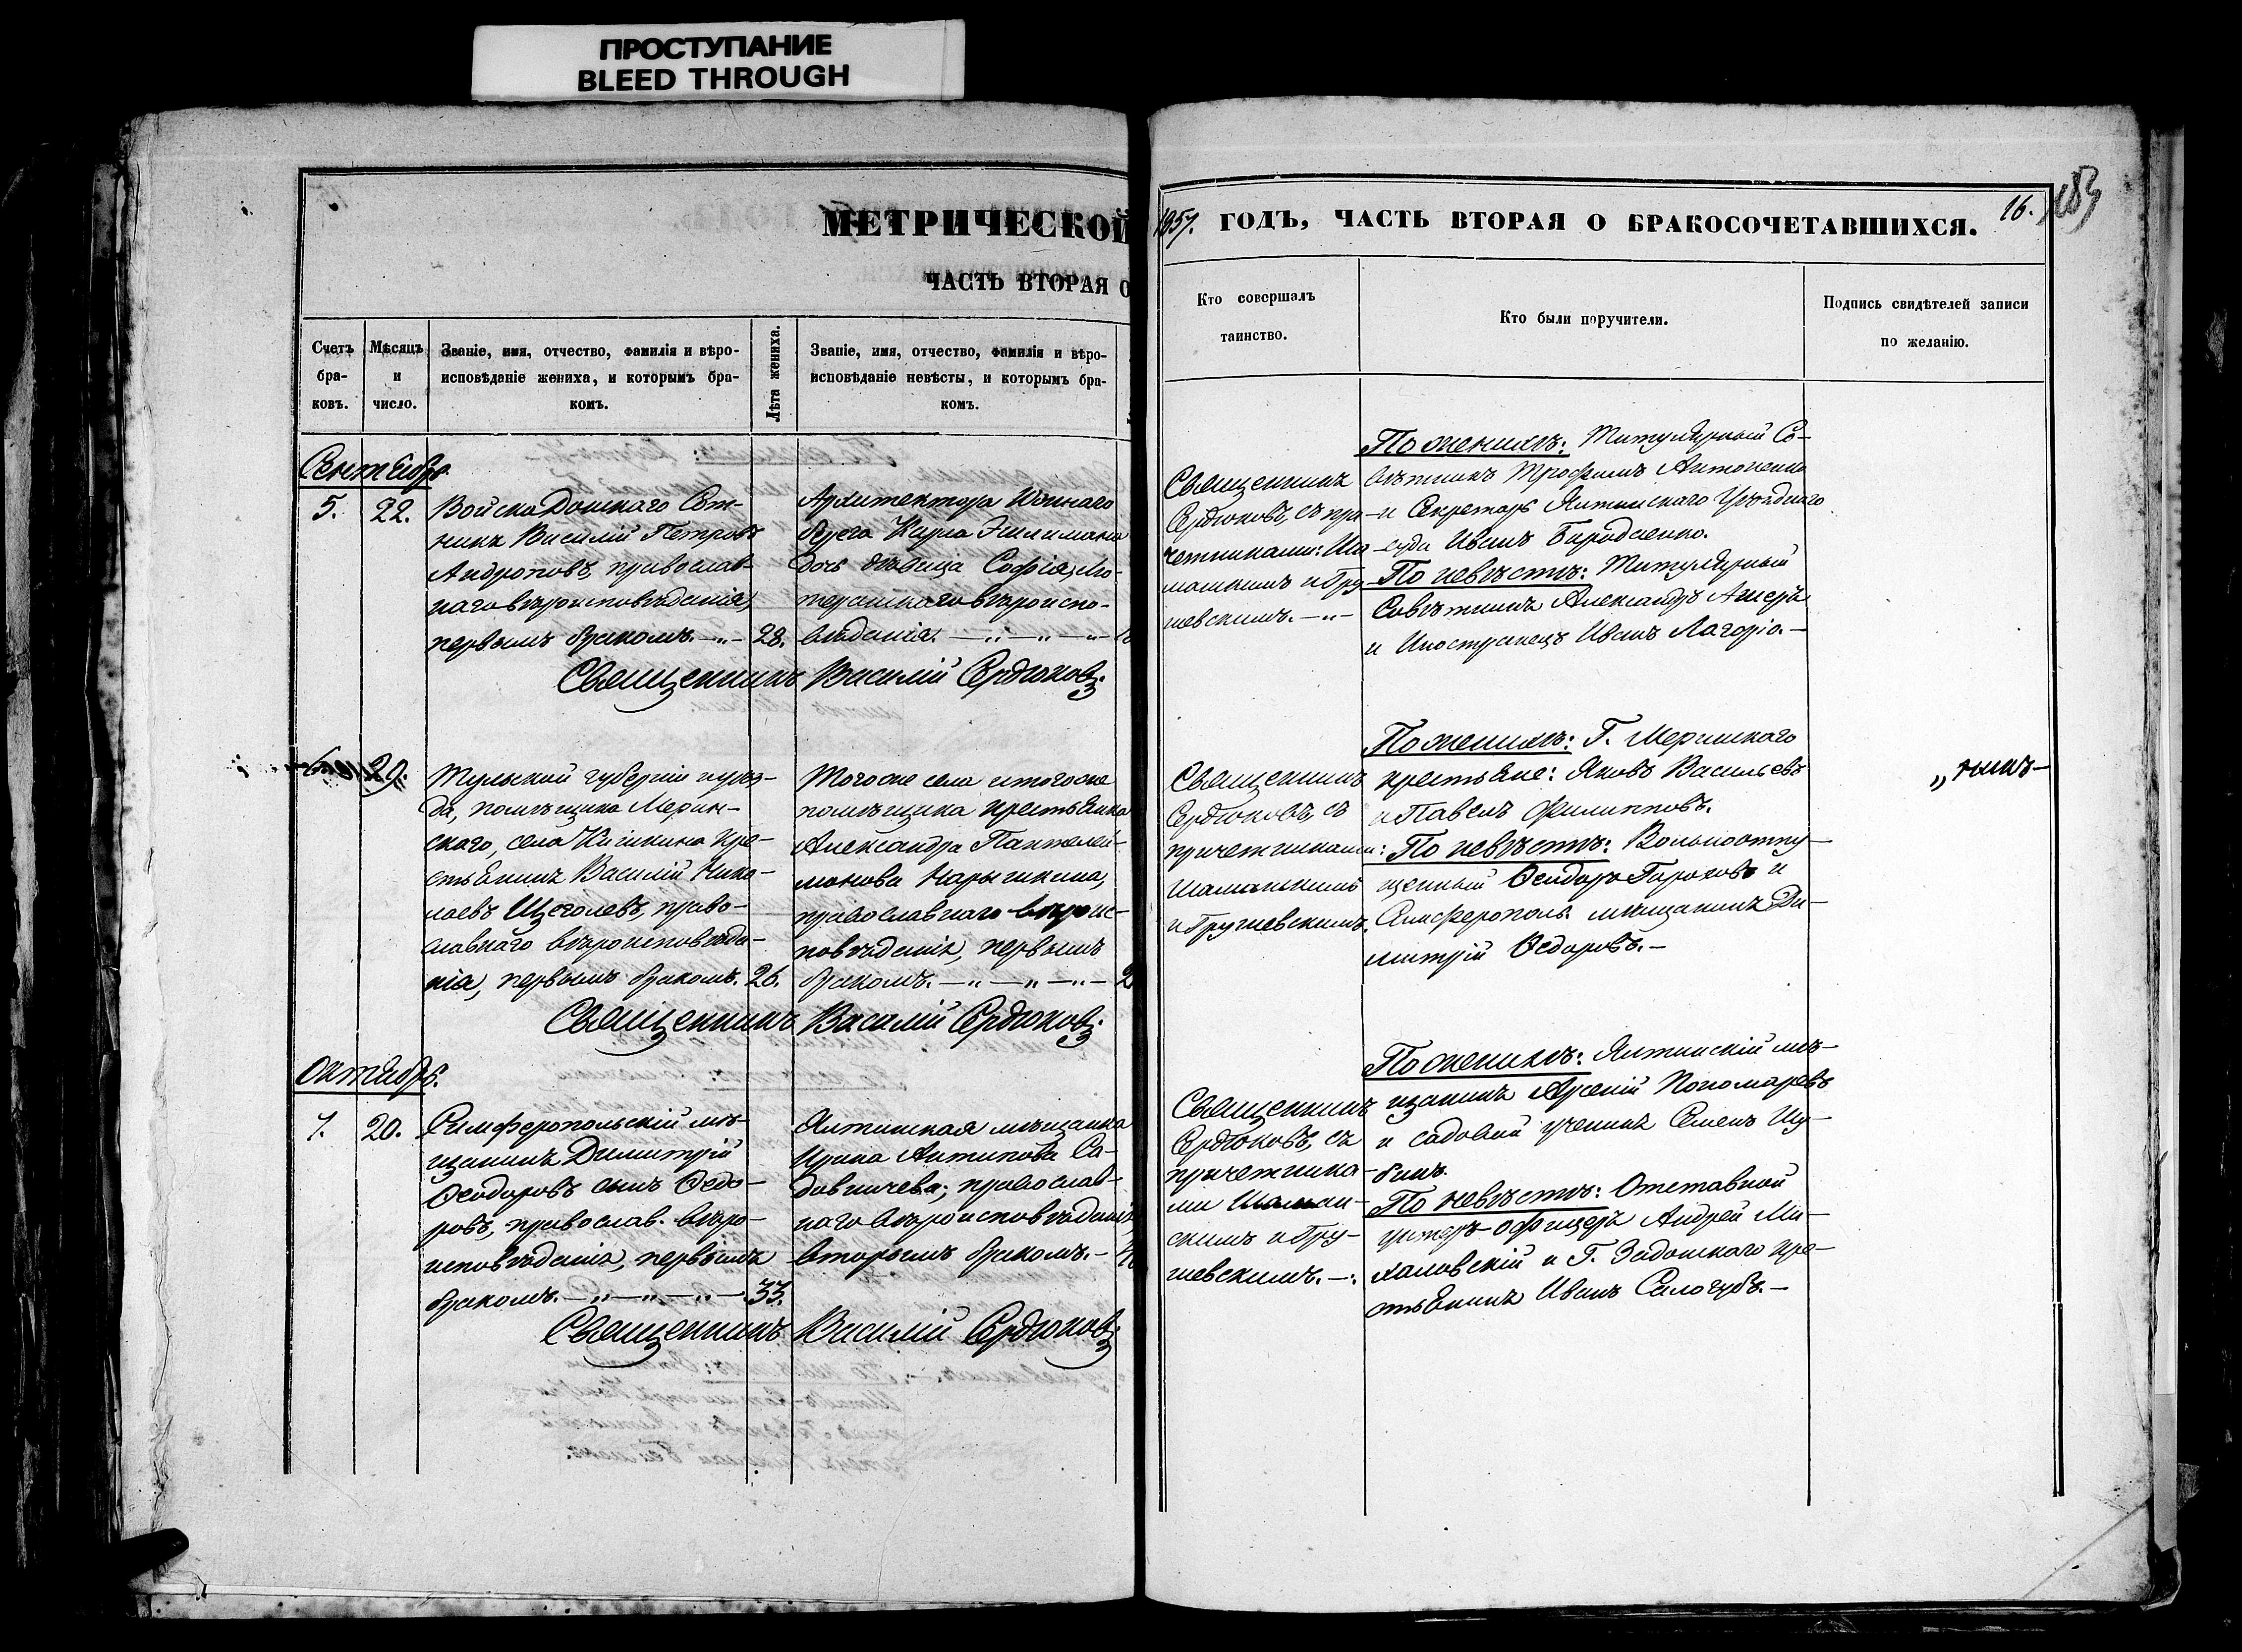 ПРОСТУПАНИЕ
BLEED THROUGH
МЕТРИЧЕСКОЙ
ЧАСТЬ ВТОРАЯ О
Счетъ бра-ковъ.
Мѣсяцъ и число.
Званіе, имя, отчество, фамилія и вѣро-
исповѣданіе жениха, и которымъ бра-
комъ.
Лѣта жениха.
Званіе, имя, отчество, фамилія и вѣро-
исповѣданіе невѣсты, и которымъ бра-
комъ.
Сентябрь.
5.
22.
Войска Донскаго Сот-
никъ Василій Петровъ
Андроповъ, православ-
наго вѣроисповѣданія,
первымъ бракомъ.
28.
Архитектора Южнаго
берега Карла Эшлимана
дочь дѣвица Софія, лю-
теранскаго вѣроиспо-
вѣданія.
Священникъ Василій Сердюковъ.
6.
29.
Тульской губерніи и уѣз-
да, помѣщика Мерин-
скаго, села Кишкина кре-
стьянинъ Василій Нико-
лаевъ Щеголевъ, право-
славнаго вѣроисповѣда-
нія, первымъ бракомъ.
26.
Того же села и того же
помѣщика крестьянка
Александра Пантелей-
монова Нарышкина,
православнаго вѣроис-
повѣданія, первымъ
бракомъ.
Священникъ Василій Сердюковъ.
Октябрь.
7.
20.
Симферопольскій мѣ-
щанинъ Димитрій
Ѳеодоровъ сынъ Ѳедо-
ровъ, православ. вѣро-
исповѣданія, первымъ
бракомъ.
33.
Ялтинская мѣщанка
Ирина Антипова Са-
довничева; православ-
наго вѣроисповѣданія,
вторымъ бракомъ.
Священникъ Василій Сердюковъ.
1857. ГОДЪ, ЧАСТЬ ВТОРАЯ О БРАКОСОЧЕТАВШИХСЯ.
16.
183
Кто совершалъ
таинство.
Кто были поручители.
Подпись свидѣтелей записи
по желанію.
Священникъ
Сердюковъ, съ при-
четниками: Ша-
манскимъ и Гру-
шевскимъ.
По женихѣ: Титулярный Со-
вѣтникъ Трофимъ Антоненко
и Секретарь Ялтинскаго Уѣзднаго
суда Иванъ Бородаенко.
По невѣстѣ: Титулярный
Совѣтникъ Александръ
и Иностранецъ Иванъ Лагоріо.
Священникъ
Сердюковъ, съ
причетниками:
Шаманскимъ
и Грушевскимъ.
По женихѣ: Г. Меринскаго
крестьяне: Яковъ Васильевъ
и Павелъ Филипповъ.
По невѣстѣ: Вольноотпу-
щенный Ѳеодоръ Гороховъ и
Симферополь. мѣщанинъ Ди-
митрій Ѳедоровъ.
Священникъ
Сердюковъ, съ
причетника-
ми Шаман-
скимъ и Гру-
шевскимъ.
По женихѣ: Ялтинскій мѣ-
щанинъ Арсеній Пономаревъ
и садовый ученикъ Семенъ Шу-
бинъ.
По невѣстѣ: Отставной
унтеръ-офицеръ Андрей Ми-
халовскій и Г. Задонскаго кре-
стьянинъ Иванъ Сологубъ.